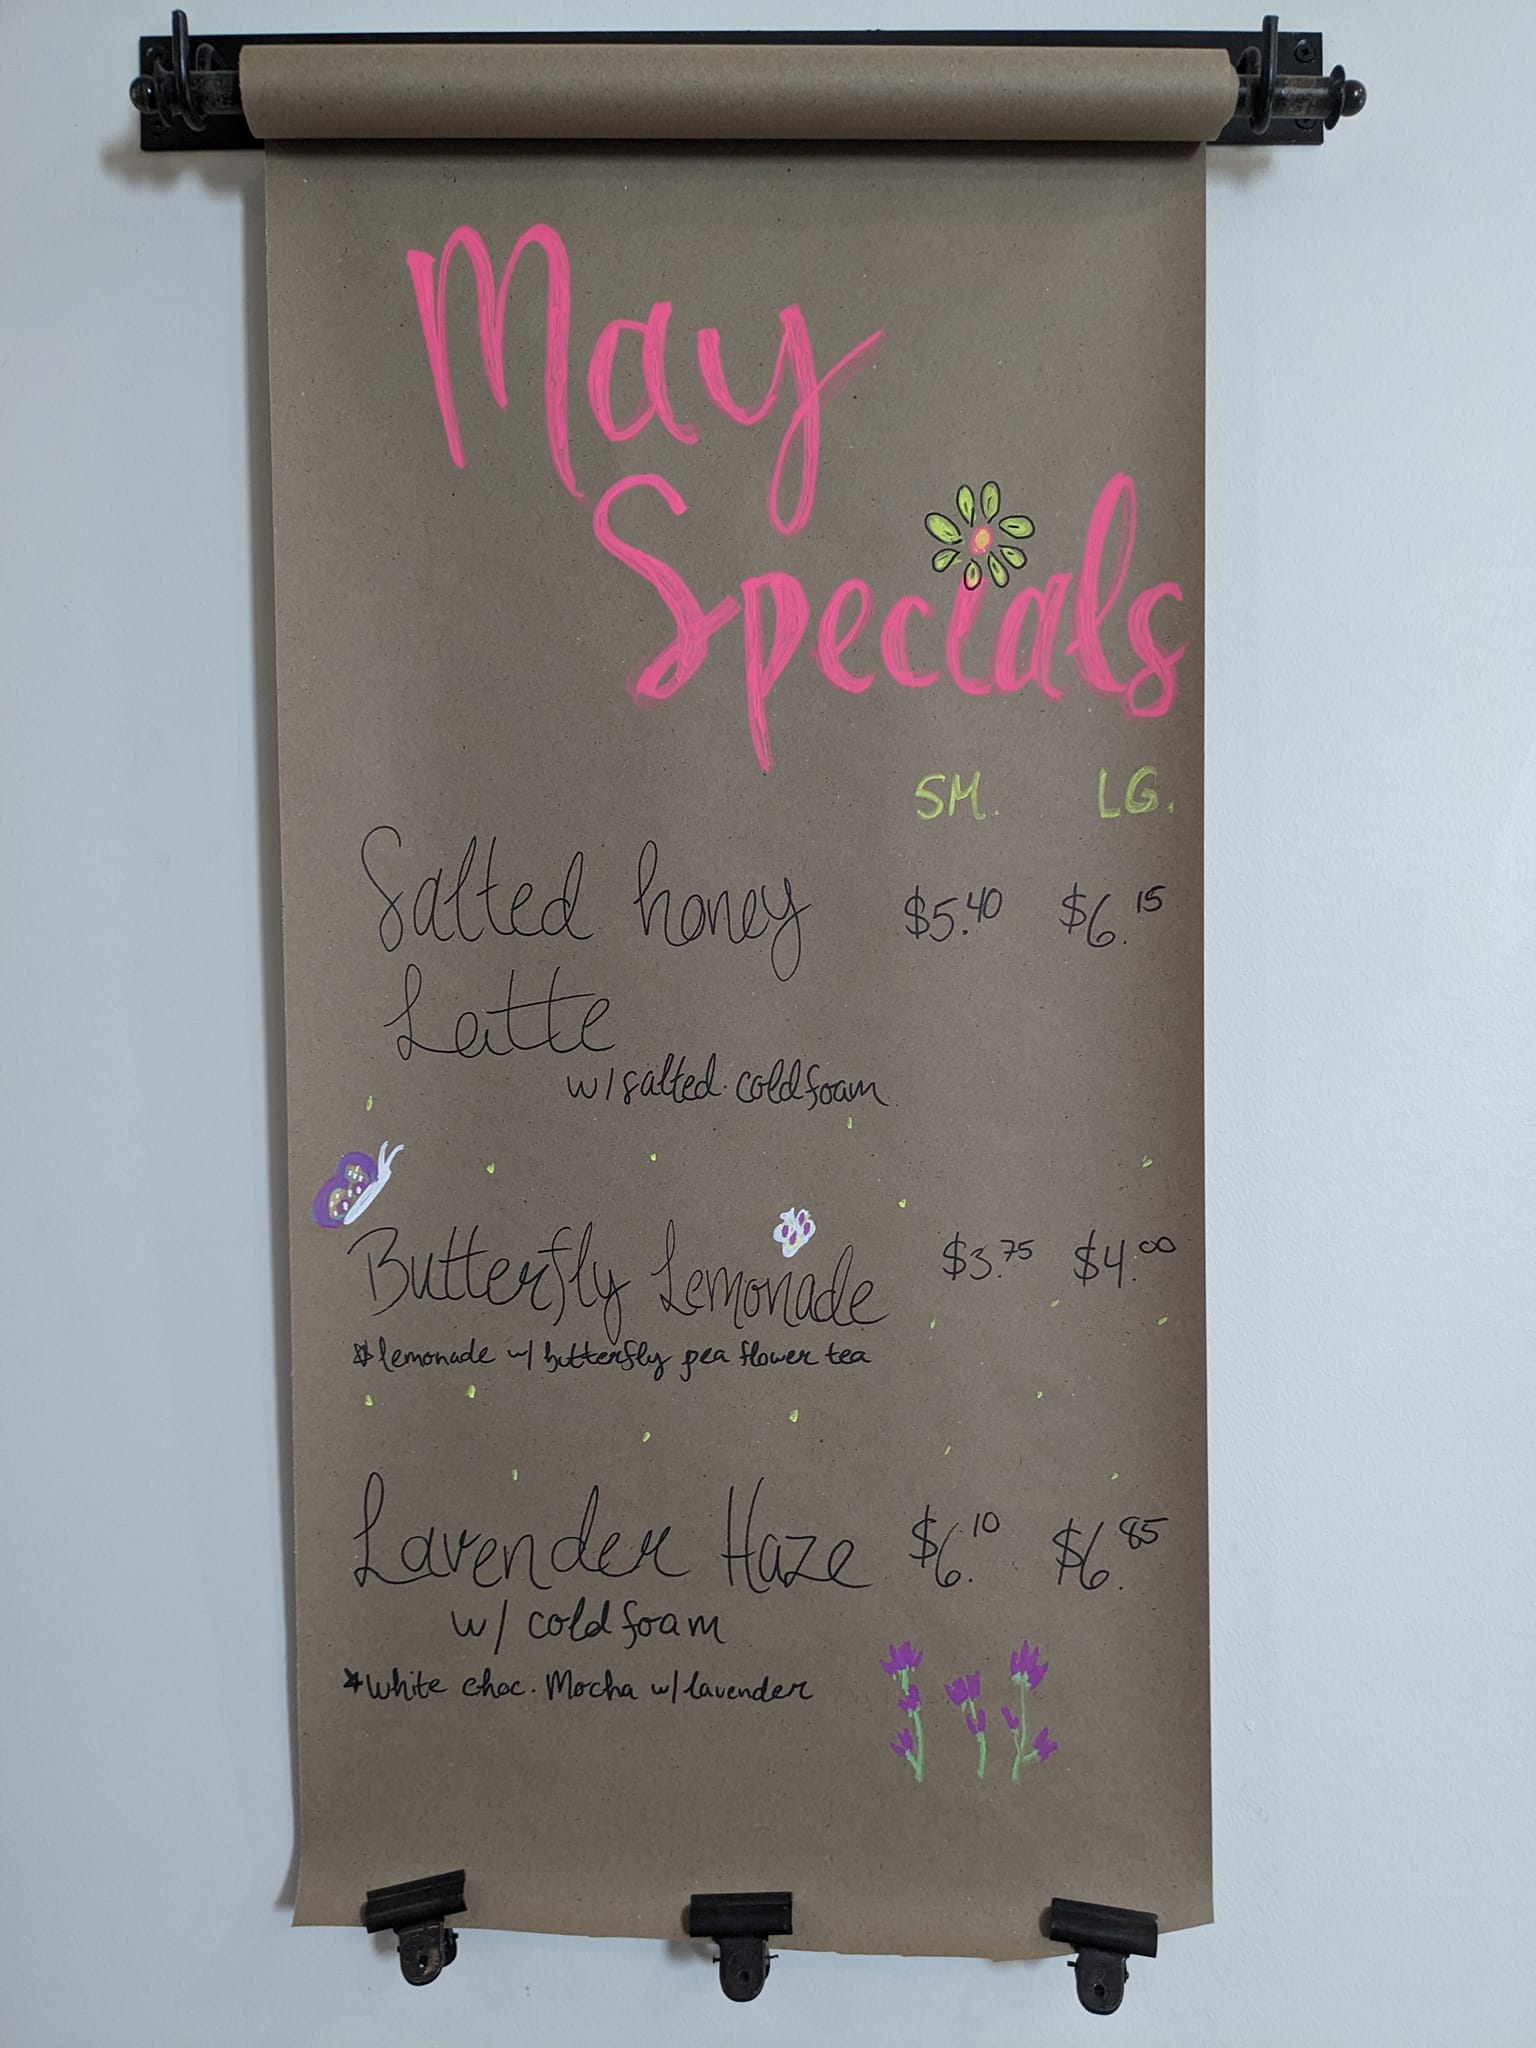 May
Specials
SM. LG.
Salted honey $5.40 $6.15
Latte
w/salted cold foam
Butterfly Lemonade $3.75 $4.00
*lemonade w/ butterfly pea flower tea
Lavender Haze $6.10 $6.85
w/ cold foam
*white choc. Mocha w/lavender